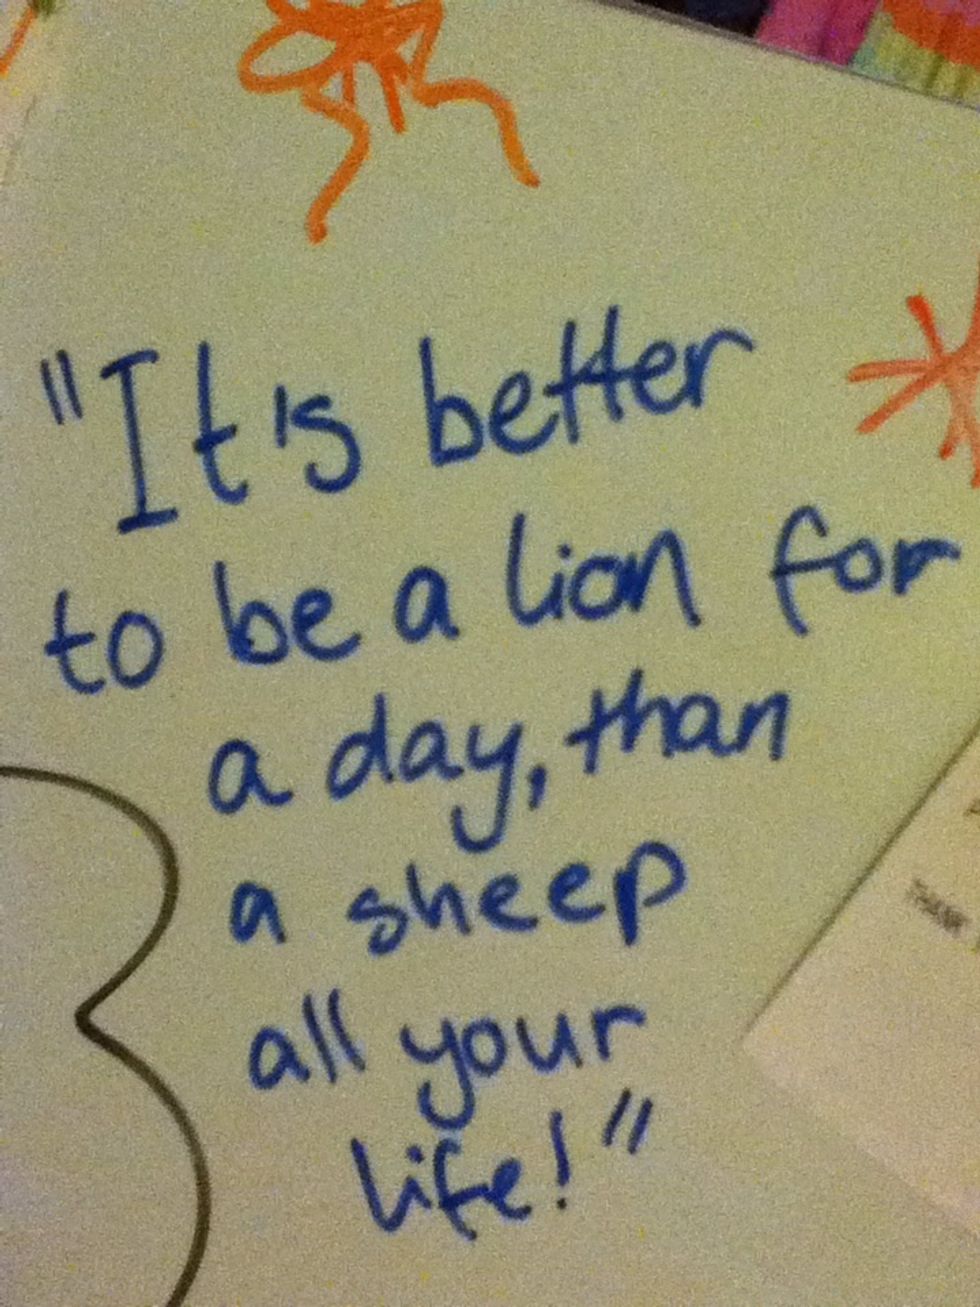 "It's better
to be a lion for
a day, than
a sheep
all your
life!"
THANK